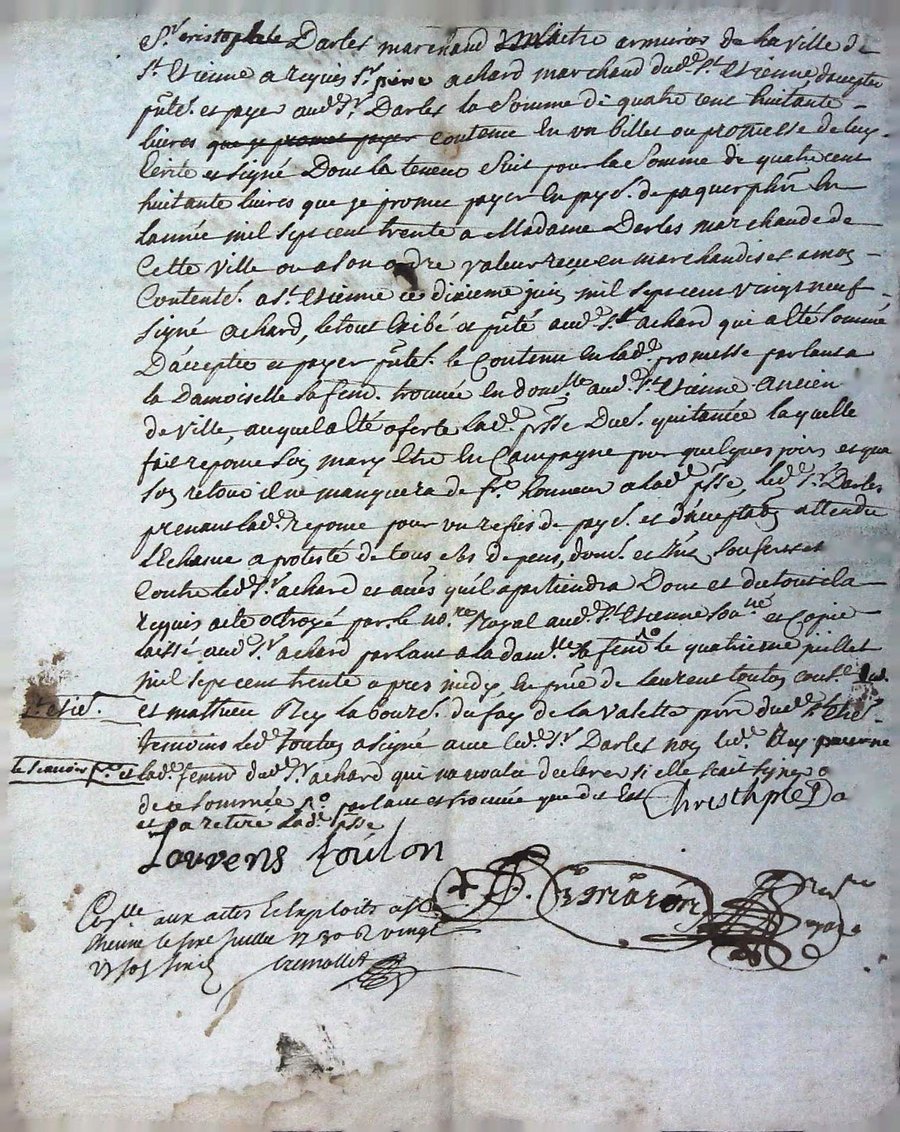 Sr cristophle Darles marchand & Maitre armurier de la ville de
St Etienne a requis Sr piere achard marchand dud. St Etienne daccepter
pntt. et payer aud. Sr Darles la Somme de quatre cent huitante
livres que je promet payer contenue en un billet ou promesse de luy
Ecrite et signé Dont la teneur Suit pour la Somme de quatre cent
huitante livres que je promet payer en payt. de paques
Lannée mil sept cent trente a Madame Darles marchande de
Cette ville ou a son ordre valeur reçu en marchandises a mon
Contentt. a St Etienne ce dixieme juin mil sept cent vingt neuf
signé achard, le tout exibé et pnté aud. Sr achard qui a eté Sommé
D'accepter et payer pntt. le Contenu en lad. promesse parlant a
la Damoiselle sa fem. trouvée en domlle aud. St Etienne
de ville, auquel a eté oferte lad. psse Duet. quitancée laquelle
fait reponce Son mary Etre en Campagne pour quelques jours et qua
Son retour il ne manquera de fre honneur a lad. psse, led. Sr Darles
prenant lad. reponce pour un refus de payt. et d'acceptaon attendu
L'Echance a protesté de tous de pens, dom. et Soufers et
Contre led. Sr achard et autres quil apartiendra Dont et du tout il a
requis acte octroyé par le nore Royal aud. St Etienne et Copie
laissé aud. Sr achard parlant a la damlle sa fem. le quatrieme juillet
mil sept cent trente a pres midy, en pnce de Laurent toulon
St Etie. et mathieu Rey Labourr. du fay de la valette pnn dud. St Etie.
temoins led. toulon a signé avec led. Sr Darles non led. Rey
lad. femme dud. Sr achard qui na voulu declarer si elle scait signer
de ce Sommée parlant et trouvée que dit Est Christhple Da
et a retiré lad. psse
Lavrens toulon
Coll. aux actes & Exploits a St
Etienne le juillet 1730